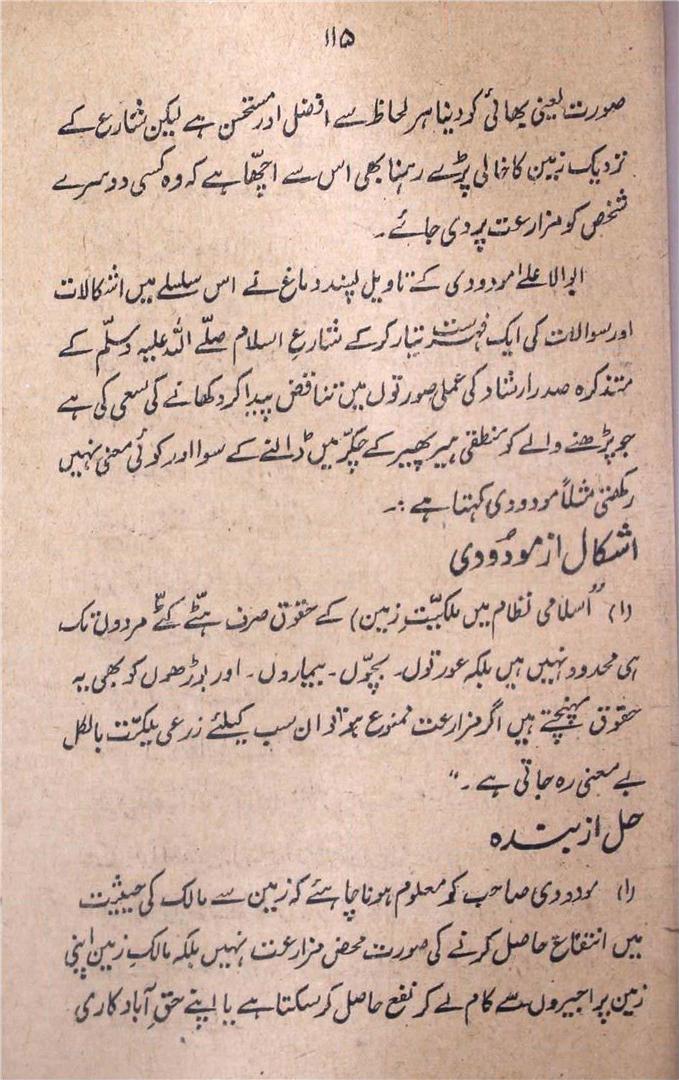 ۱۱۵
صورت یعنی بھائی کو دینا ہر لحاظ سے افضل اور مستحسن ہے لیکن شارع کے
نزدیک زمین کا خالی پڑے رہنا بھی اس سے اچھّا ہے کہ وہ کسی دوسرے
شخص کو مزارعت پر دی جائے۔
ابوالاعلےٰ مودودی کے تاویل پسند دماغ نے اس سلسلے میں اشکالات
اور سوالات کی ایک فہرست تیار کر کے شارعِ اسلام صلّے اللہ علیہ وسلّم کے
متذکرہ صدر ارشاد کی عملی صورتوں میں تناقض پیدا کر دکھانے کی سعی کی ہے
جو پڑھنے والے کو منطقی ہیر پھیر کے چکّر میں ڈالنے کے سوا اور کوئی معنی نہیں
رکھتی مثلاً مودودی کہتا ہے :۔
اشکال از مودُودی
(۱) "اسلامی نظام میں ملکیّتِ زمین) کے حقوق صرف ہٹّے کٹّے مردوں تک
ہی محدود نہیں ہیں بلکہ عورتوں۔ بچّوں۔ بیماروں۔ اور بوڑھوں کو بھی یہ
حقوق پہنچتے ہیں اگر مزارعت ممنوع ہو تو ان سب کیلئے زرعی ملکیّت بالکل
بے معنی رہ جاتی ہے۔"
حل از بندہ
(۱) مودودی صاحب کو معلوم ہونا چاہئے کہ زمین سے مالک کی حیثیت
میں انتفاع حاصل کرنے کی صورت محض مزارعت نہیں بلکہ مالکِ زمین اپنی
زمین پر اجیروں سے کام لے کر نفع حاصل کر سکتا ہے یا اپنے حقِ آباد کاری